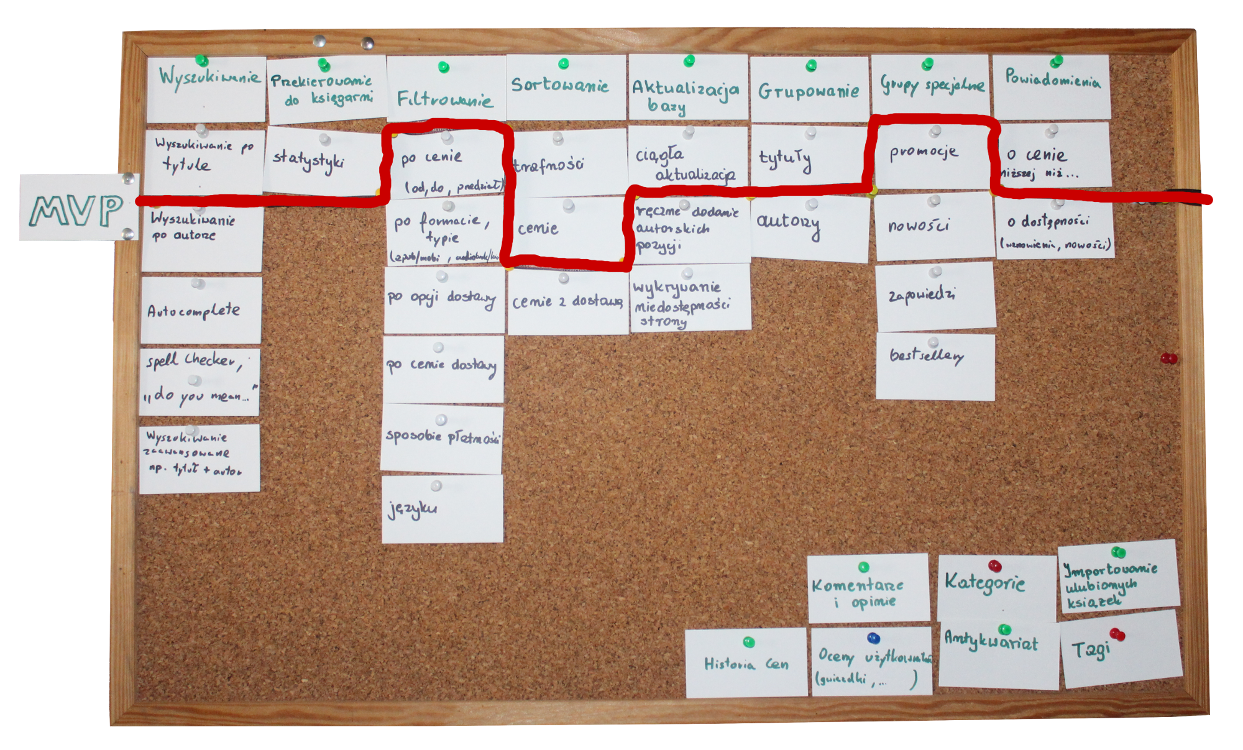 MVP
Wyszukiwanie
Wyszukiwanie po
tytule
Wyszukiwanie
po autorze
Autocomplete
spell checker,
"do you mean..."
Wyszukiwanie
zaawansowane
np. tytuł + autor
Przekierowanie
do księgarni
statystyki
Filtrowanie
po cenie
(od, do, przedział)
po formacie,
typie
(epub/mobi, audiobook/
po opcji dostawy
po cenie dostawy
sposobie płatności
języku
Sortowanie
trafności
cenie
cenie z dostawą
Aktualizacja
bazy
ciągła
aktualizacja
ręczne dodanie
autorskich
pozycji
wykrywanie
niedostępności
strony
Grupowanie
tytuły
autorzy
Grupy specjalne
promocje
nowości
zapowiedzi
bestsellery
Powiadomienia
o cenie
niższej niż...
o dostępności
(wznowienia, nowości)
Komentarze
i opinie
Kategorie
Importowanie
ulubionych
książek
Historia cen
Oceny użytkowników
(gwiazdki, ... )
Antykwariat
Tagi